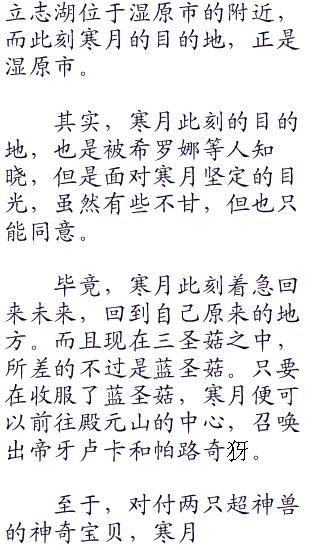 立志湖位于湿原市的附近，
而此刻寒月的目的地，正是
湿原市。
其实，寒月此刻的目的
地，也是被希罗娜等人知
晓，但是面对寒月坚定的目
光，虽然有些不甘，但也只
能同意。
毕竟，寒月此刻着急回
来未来，回到自己原来的地
方。而且现在三圣菇之中，
所差的不过是蓝圣菇。只要
在收服了蓝圣菇，寒月便可
以前往殿元山的中心，召唤
出帝牙卢卡和帕路奇犽。
至于，对付两只超神兽
的神奇宝贝，寒月